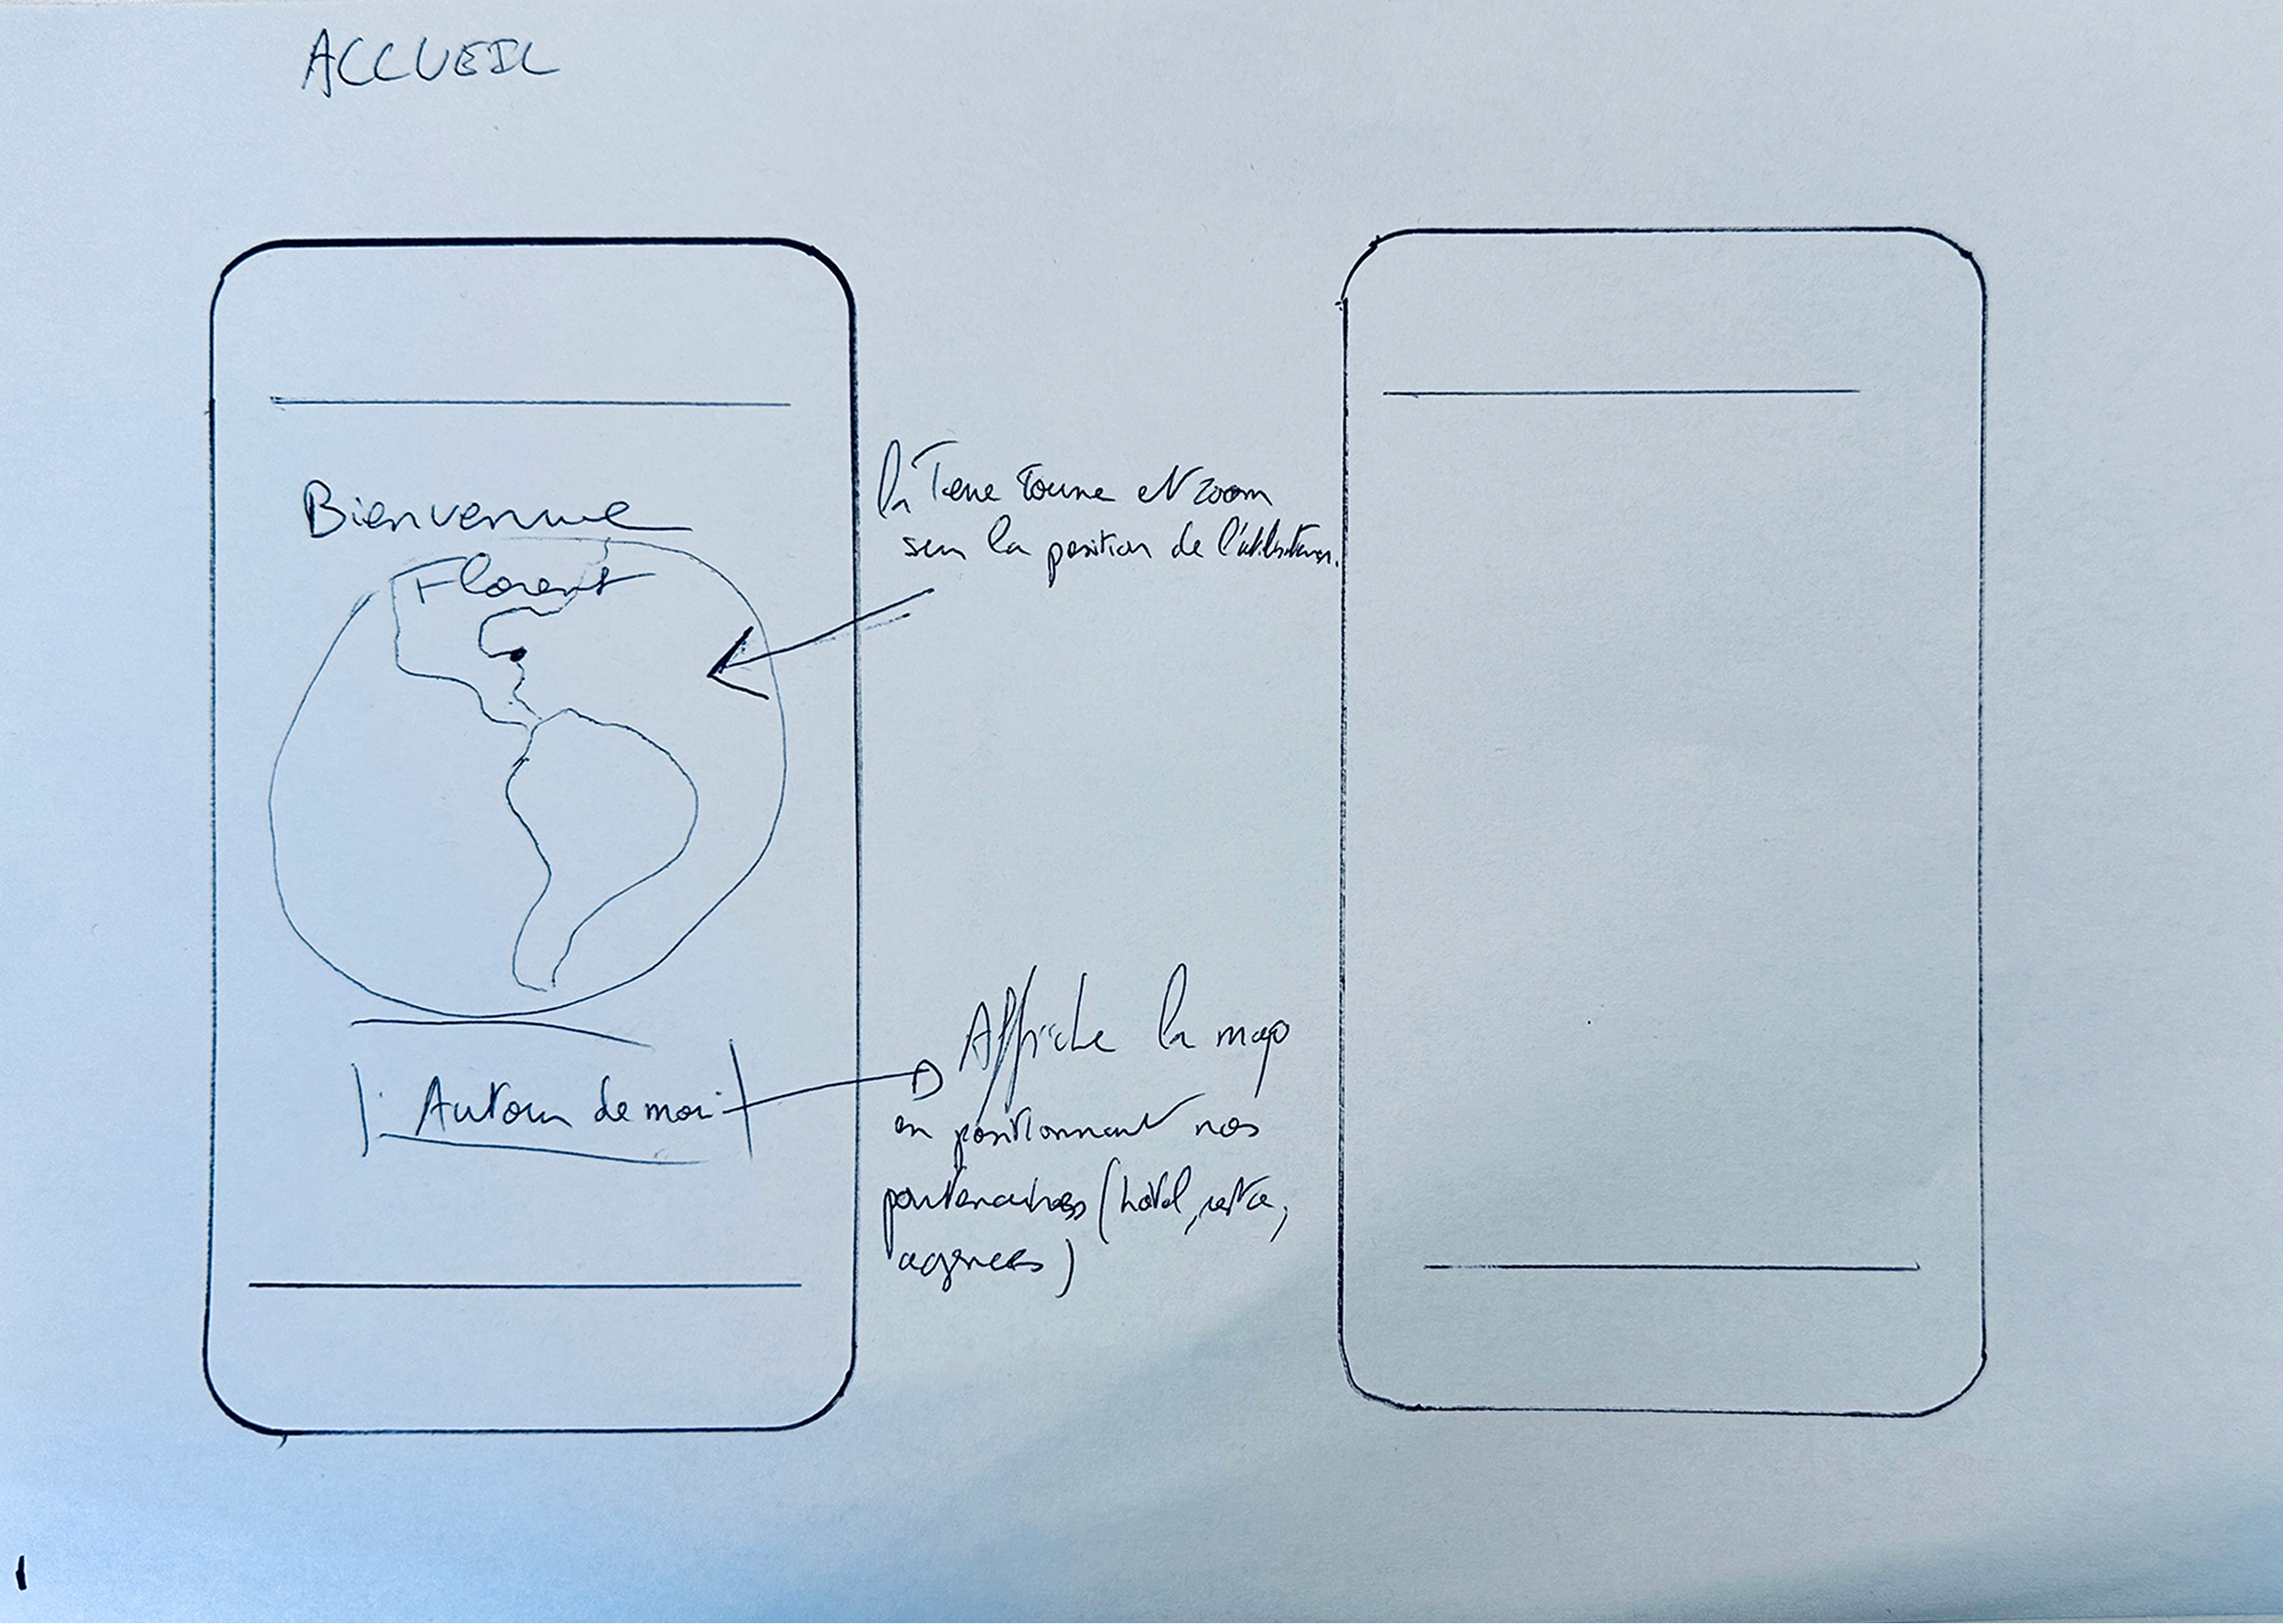 ACCUEIL
Bienvenue
Florent
la Terre tourne et zoom
sur la position de l'utilisateur.
Autour de moi
Affiche la map
en positionnant nos
partenaires (hôtel, resto,
agences)
1